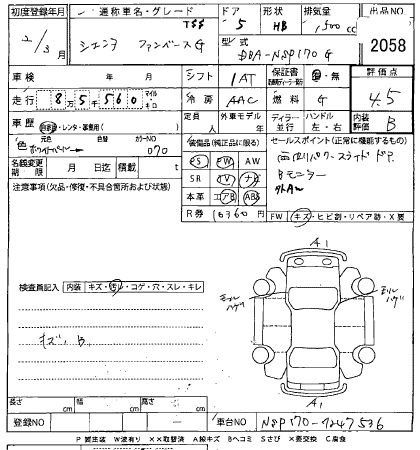 初度登録年月 通称車名・グレード ドア 形状 排気量 出品NO
2/3月 シエンタ ファンベースG TSS 5 HB 1,500 cc 2058
型式
DBA-NSP170G
車検 年 月 シフト 1AT 保証書 有・無 評価点
走行 8万5千560 マイル キロ 冷房 AAC 燃料 G 4.5
車歴 自家用・レンタ・事業用( ) 定員 人 外車モデル 年 ディーラー 並行 ハンドル 左・右 内装評価 B
色 元色 色替 カラーNO
070
装備品(純正品に限る) セールスポイント(正常に機能するもの)
PS PW AW
名義変更期限 月 日迄 積載 t
SR TV ナビ Bモニター
注意事項(欠品・修復・不具合箇所および状態)
本革 エアB ABS 外AW
R券 10360円 FW キズ・ヒビ割・リペア跡・X要
検査員記入 内装 キズ・汚レ・コゲ・穴・スレ・キレ
A1
ミラーハゲ
ミラーハゲ
キズ、B
A1
長さ cm 幅 cm 高さ cm
登録NO 車台NO NSP170-7247536
P 要塗装 W波有り ××取替済 A線キズ Bヘコミ Sさび ×要交換 C腐食